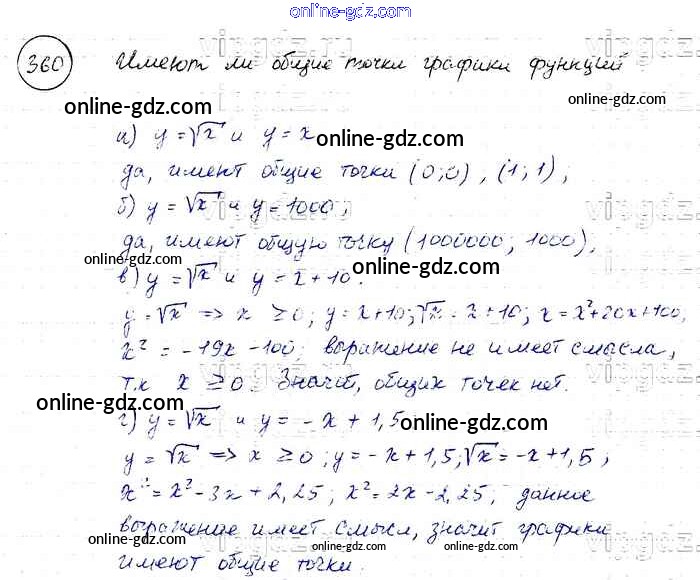 online-gdz.com
360 Имеют ли общие точки графики функций
online-gdz.com
online-gdz.com
а) y = √x и y = x
online-gdz.com
да, имеют общие точки (0;0), (1;1);
б) y = √x и y = 1000;
да, имеют общую точку (1000000; 1000),
online-gdz.com
в) y = √x и y = x + 10.
online-gdz.com
y = √x => x ≥ 0; y = x+10; √x = x + 10; x = x²+20x+100,
x² = -19x - 100; выражение не имеет смысла,
т.к x ≥ 0. Значит, общих точек нет.
online-gdz.com
г) y = √x и y = - x + 1,5
online-gdz.com
y = √x => x ≥ 0; y = -x + 1,5; √x = -x + 1,5;
x = x² - 3x + 2,25; x² = 2x - 2,25; данное
online-gdz.com
выражение имеет смысл, значит графики
online-gdz.com
online-gdz.com
имеют общие точки.